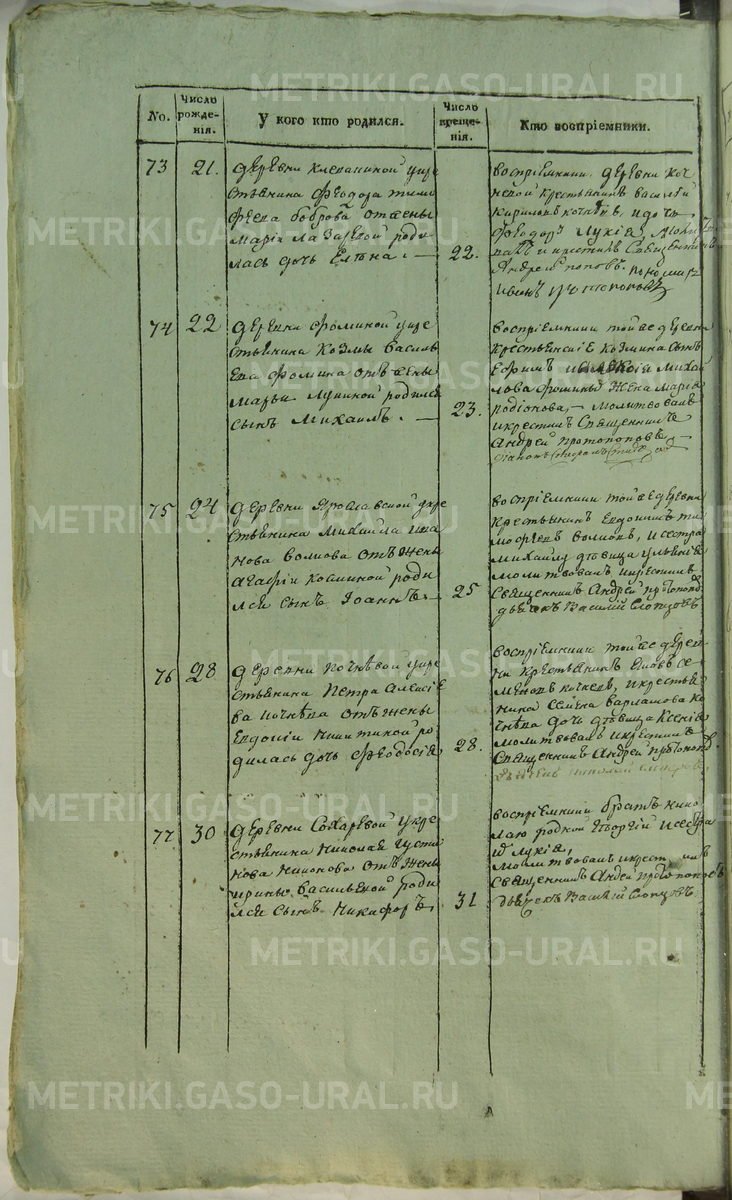 METRIKI.GASO-URAL.RU
No.
Число рожде-
нія.
У кого кто родился.
Число креще-
нія.
Кто воспріемники.
73
21.
деревни Клепаниной укре
стьянина Феодора Тимо
феева Боброва отжены
Маріи Лазаревой роди
лась дочь Елена. —
22.
воспріемники деревни Коч
невой крестьянинъ Василій
Кириловъ Кочневъ, и дочь
Феодор Лукія, молит
валъ и крестилъ Священникъ
Андрей Попов.
74
22
деревни Фоминой укре
стьянина Козмы Василь
ева Фомина отъ жены
Марьи Лукиной родился
сынъ Михаилъ. —
23.
воспріемники той же деревни
Ефимъ
лова Фомины жена Марія
родіонова, — молитвовалъ
икрестилъ Священникъ
Андрей Протопоповъ
75
24
деревни Ярославской укре
стьянина Михайла Ива
нова Волкова отъ жены
Агафіи Косминой роди
лся сынъ Іоаннъ. —
25
воспріемники той же деревни
крестьянинъ Евдокимъ Ти
мофеев Волков, и сестра
Михайлу девица Ульянія
молитвовалъ икрестилъ
Священникъ Андрей Протопопо
дьячекъ Василий Словцовъ
76
28
деревни Кочневой укре
стьянина Петра Алексіе
ва Кочнева отъ жены
Евдокіи Никитиной ро
дилась дочь Феодосія
28.
воспріемники той же дерев
ни крестьянинъ Се
менов Кочнев, икрестья
нина Семена Варламова Ко
чнева дочь девица Ксенія
молитвовалъ икрестилъ
Священникъ Андрей Протопопо.
77
30
деревни Сохаревой укре
стьянина Николая Усти
нова Никонова отъ жены
Ирины Васильевой роди
лся сынъ Никифоръ,
31
воспріемники братъ Нико
лаю родной Георгій и сестра
Лукія,
молитвовалъ икрестилъ
Священникъ Андрей Протопоповъ
дьячекъ Василий Словцовъ